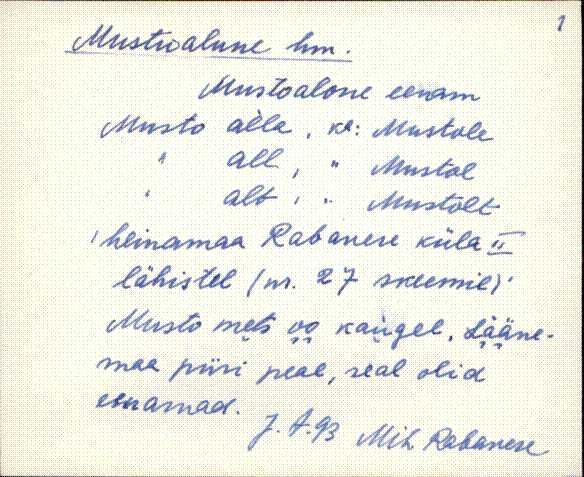 1
Mustoalune hm.
Mustoalone eenam
Musto alla, ka: Mustole
" all, " Mustol
" alt, " Mustolt
'heinamaa Rabavere küla II
lähistel (nr. 27 skeemil)'
Musto mets oo kaugel, Lääne-
maa piiri peal, seal olid
eenamad.
J. A. 93 Mih Rabavere